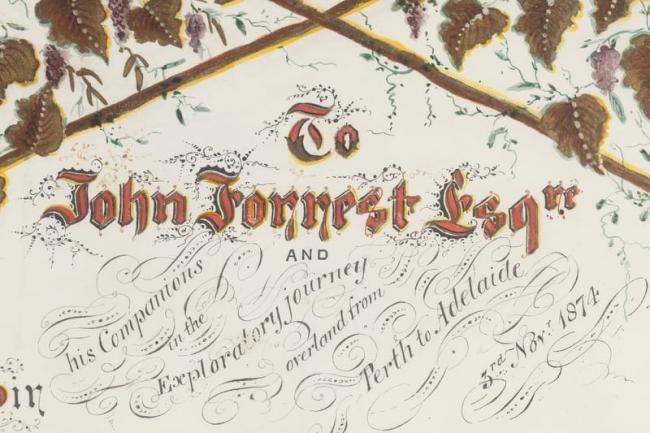 To
John Forrest Esqre
AND
his Companions
in the
Exploratory journey
overland from
Perth to Adelaide
3rd Novr 1874